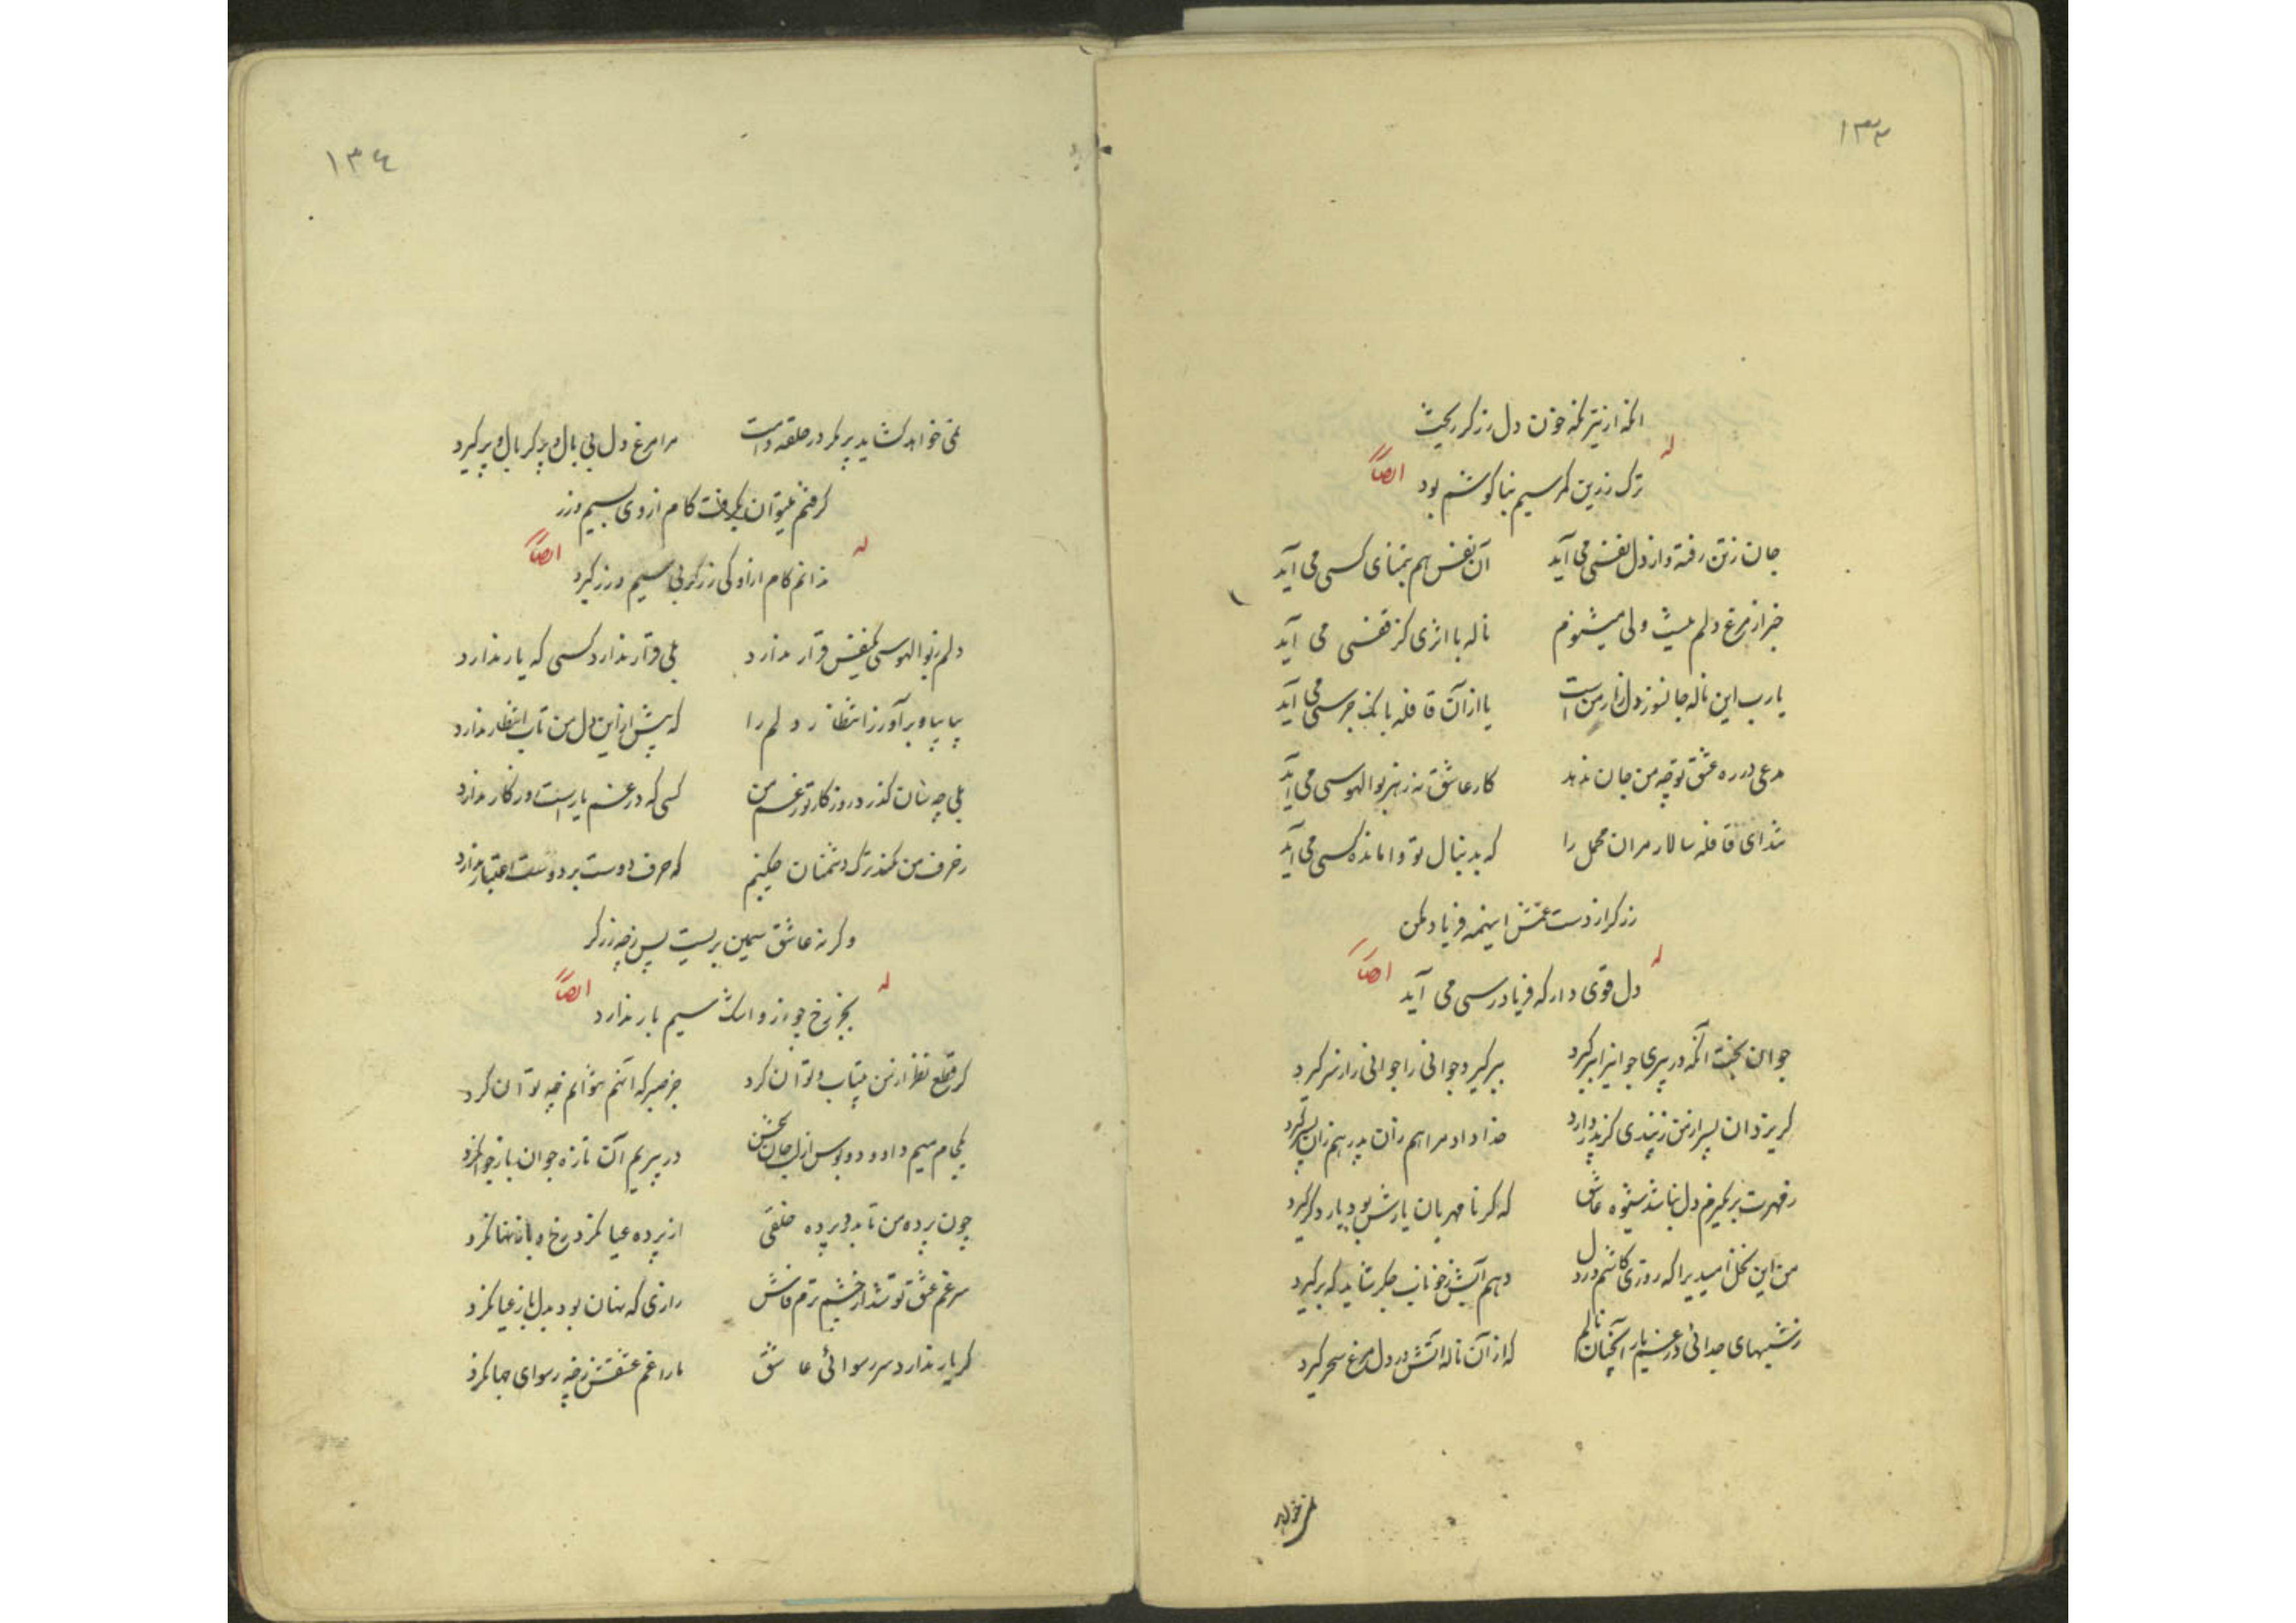 ۱۳۳
آنکه از تیر نگه خون دل زرگر ریخت
له ایضاً
ترک زرین کمر سیم بناگوشم بود
جان ز تن رفته و از دل نفسی می آید آن نفس هم بتمنای کسی می آید
خبر از مرغ دلم نیست ولی میشنوم ناله با اثری کز قفسی می آید
یا رب این ناله جانسوز دل زار منست یا از آن قافله بانک جرسی می آید
مدعی در ره عشق تو چه من جان ندهد کار عاشق نه ز هر بوالهوسی می آید
تند ای قافله سالار مران محمل را که بدنبال تو وامانده کسی می آید
زرگر از دست غمش اینهمه فریاد مکن
له ایضاً
دل قوی دار که فریادرسی می آید
جوان بخت آنکه در پیری جوانیرا ببر گیرد ببر گیرد جوانی را جوانی را ز سر گیرد
خدا داد مرا هم زان پدر هم زان پسر گیرد
ز مهرت بر نگیرم دل نباشد شیوه عاشق که گر نامهربان یارش بود یار دگر گیرد
من این نخل امیدیرا که روزی کاشتم در دل دهم آبش ز خوناب جگر شاید که بر گیرد
ز شبهای جدائی در غم یار آنچنان نالم که از آن ناله آتش در دل مرغ سحر گیرد
نمی خواهد
۱۳٤
نمی خواهد گشاید پر مگر در حلقه دامت مرا مرغ دل بی بال و پر گر بال و پر گیرد
گرفتم میتوان بگرفت کام از وی بسیم و زر
له ایضاً
ندانم کام از او کی زرگر بی سیم و زر گیرد
دلم ز بوالهوسی یکنفس قرار ندارد بلی قرار ندارد کسی که یار ندارد
بیا بیا و برآور ز انتظار دلم را که بیش از این دل من تاب انتظار ندارد
بلی چه سان گذرد روزگار تو ز غم من کسی که در غم یار است روزگار ندارد
ز حرف من نکند ترک دشمنان چکنم که حرف دوست بر دوست اعتبار ندارد
وگرنه عاشق سیمین بریست پس ز چه زرگر
له ایضاً
بجز رخ چو زر و اشک سیم بار ندارد
گر قطع نظر از من بیتاب و توان کرد جز صبر که آنهم نتوانم چه توان کرد
در پیریم آن تازه جوان باز جوانکرد
چون پرده من تا بدرد پرده خلقی از پرده عیانکرد رخ و باز نهانکرد
سر غم عشق تو شد از چشم ترم فاش رازی که نهان بود بدل باز عیانکرد
گر یار ندارد سر رسوائی عاشق ما را غم عشقش ز چه رسوای جهانکرد